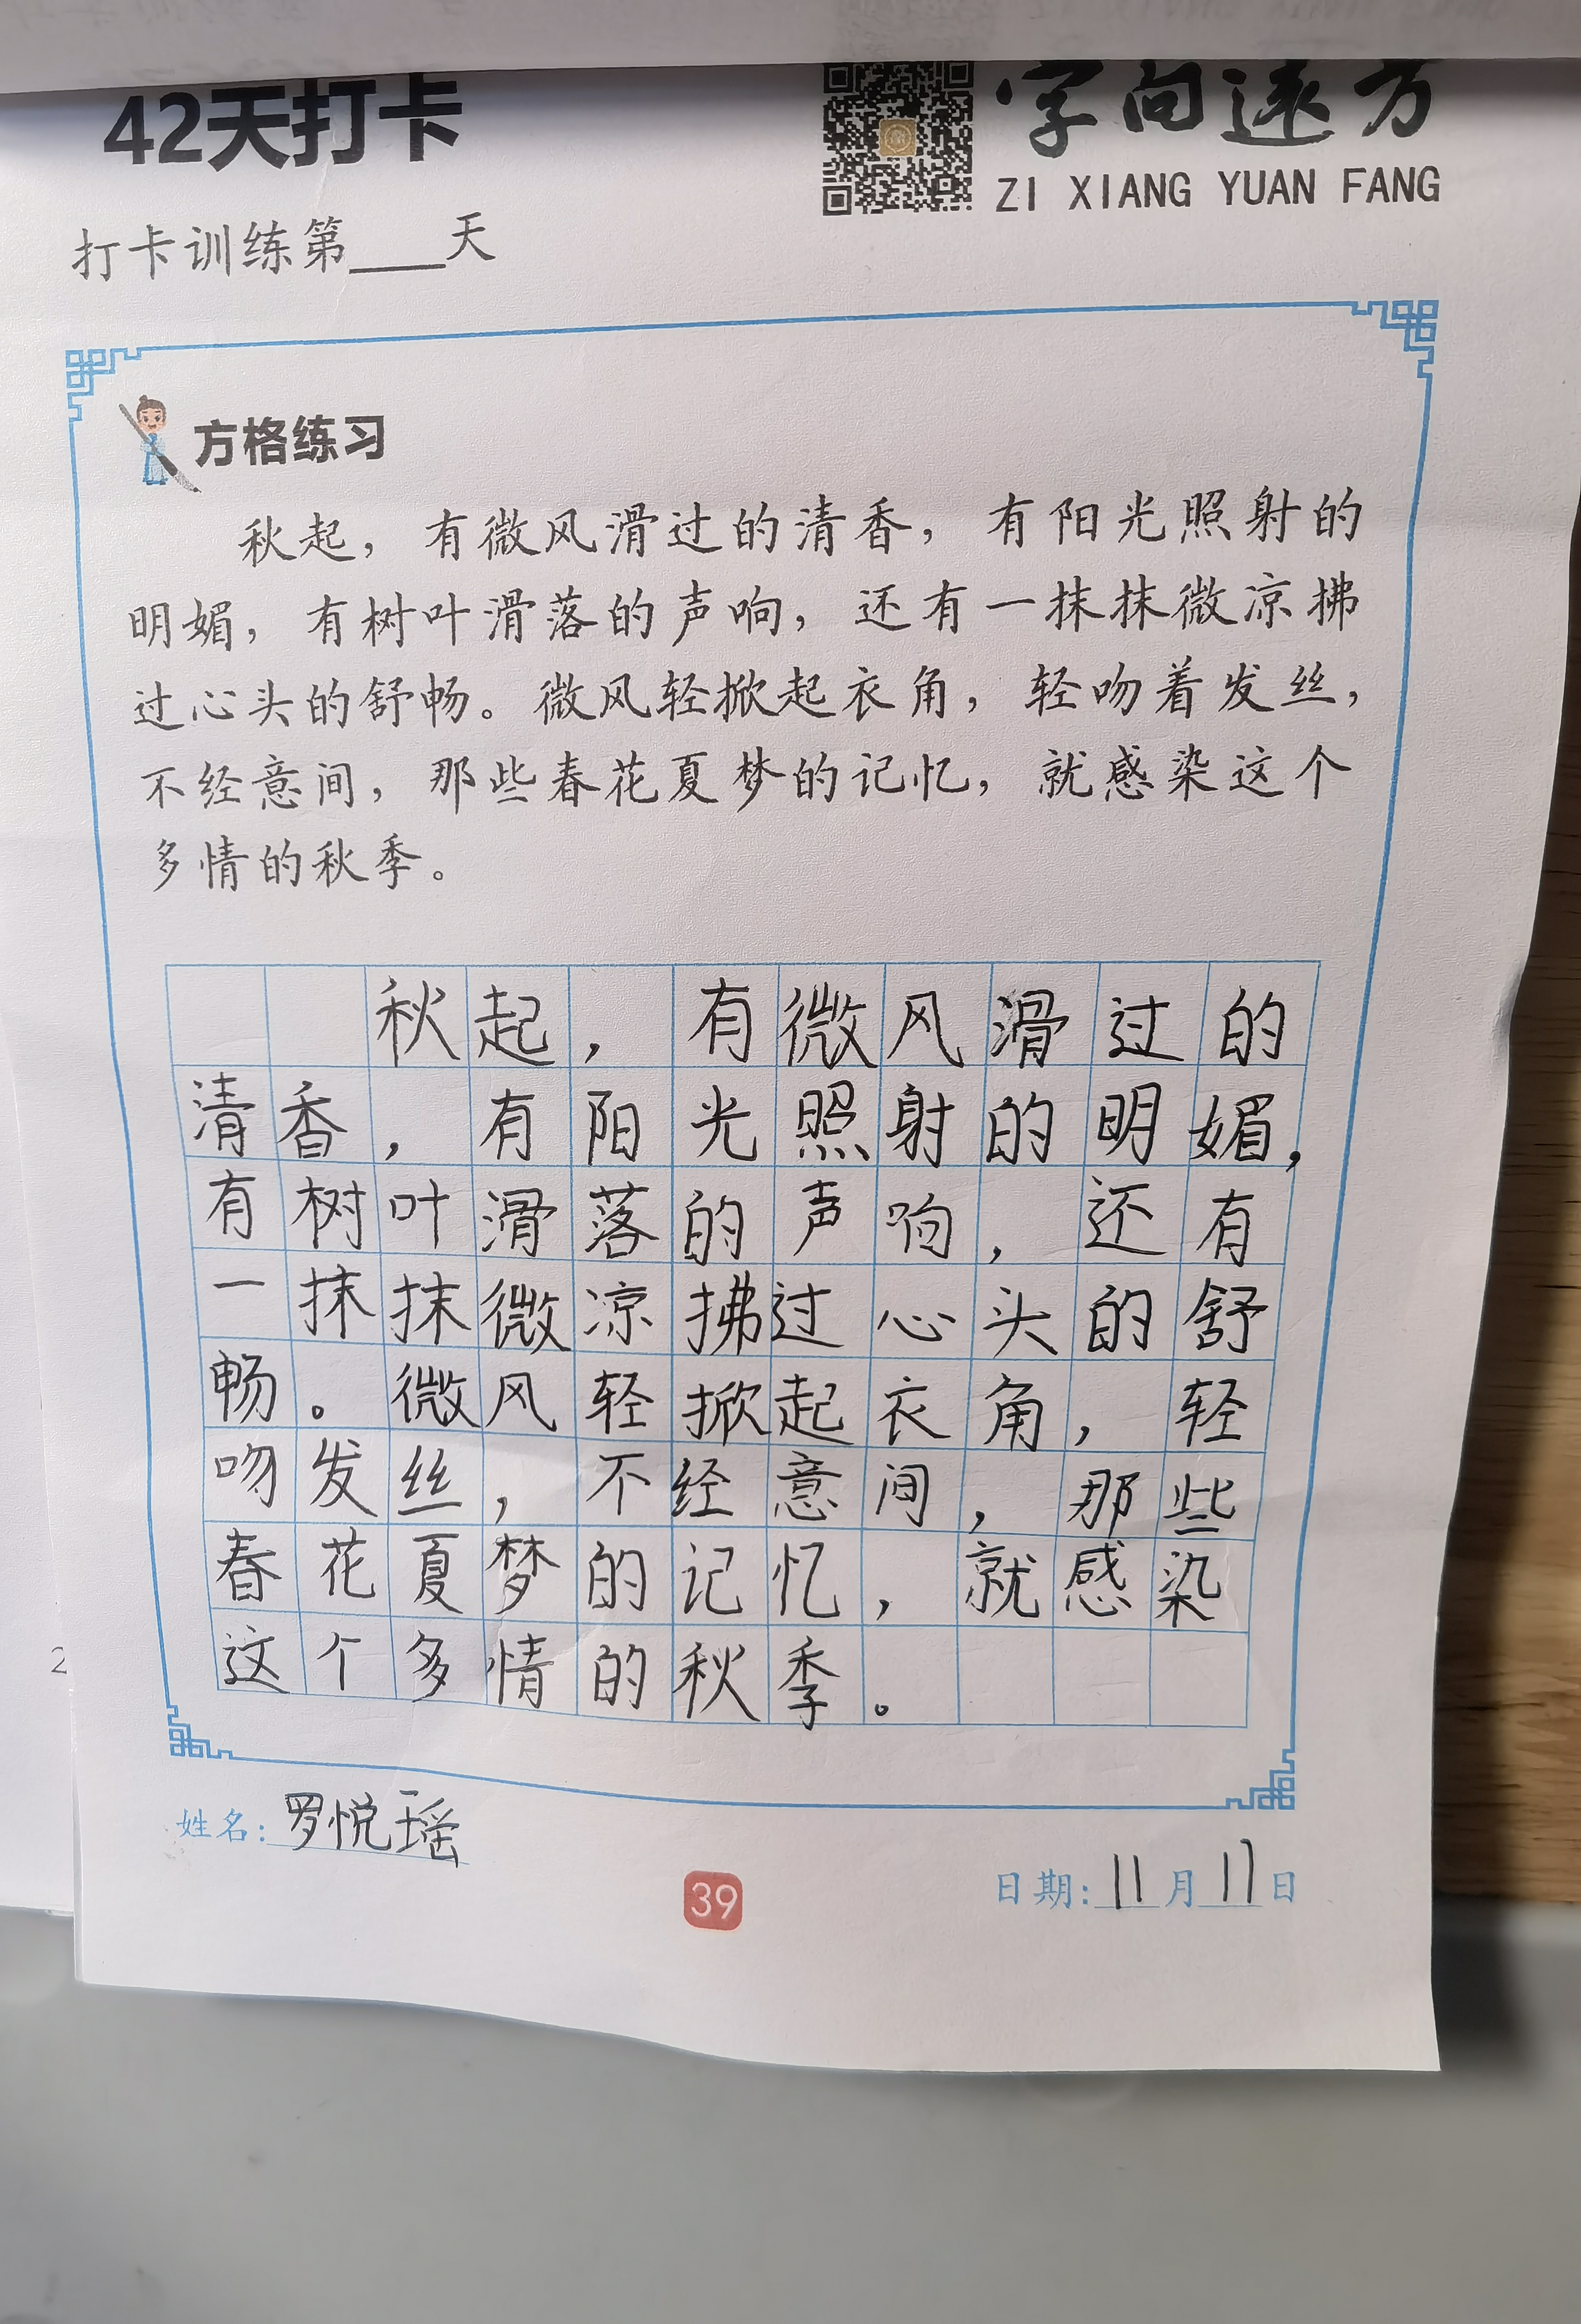 42天打卡
字向远方
ZI XIANG YUAN FANG
打卡训练第____天
方格练习
秋起，有微风滑过的清香，有阳光照射的
明媚，有树叶滑落的声响，还有一抹抹微凉拂
过心头的舒畅。微风轻掀起衣角，轻吻着发丝，
不经意间，那些春花夏梦的记忆，就感染这个
多情的秋季。
秋起，有微风滑过的
清香，有阳光照射的明媚，
有树叶滑落的声响，还有
一抹抹微凉拂过心头的舒
畅。微风轻掀起衣角，轻
吻发丝，不经意间，那些
春花夏梦的记忆，就感染
这个多情的秋季。
姓名：罗悦瑶
日期：11月17日
39
2